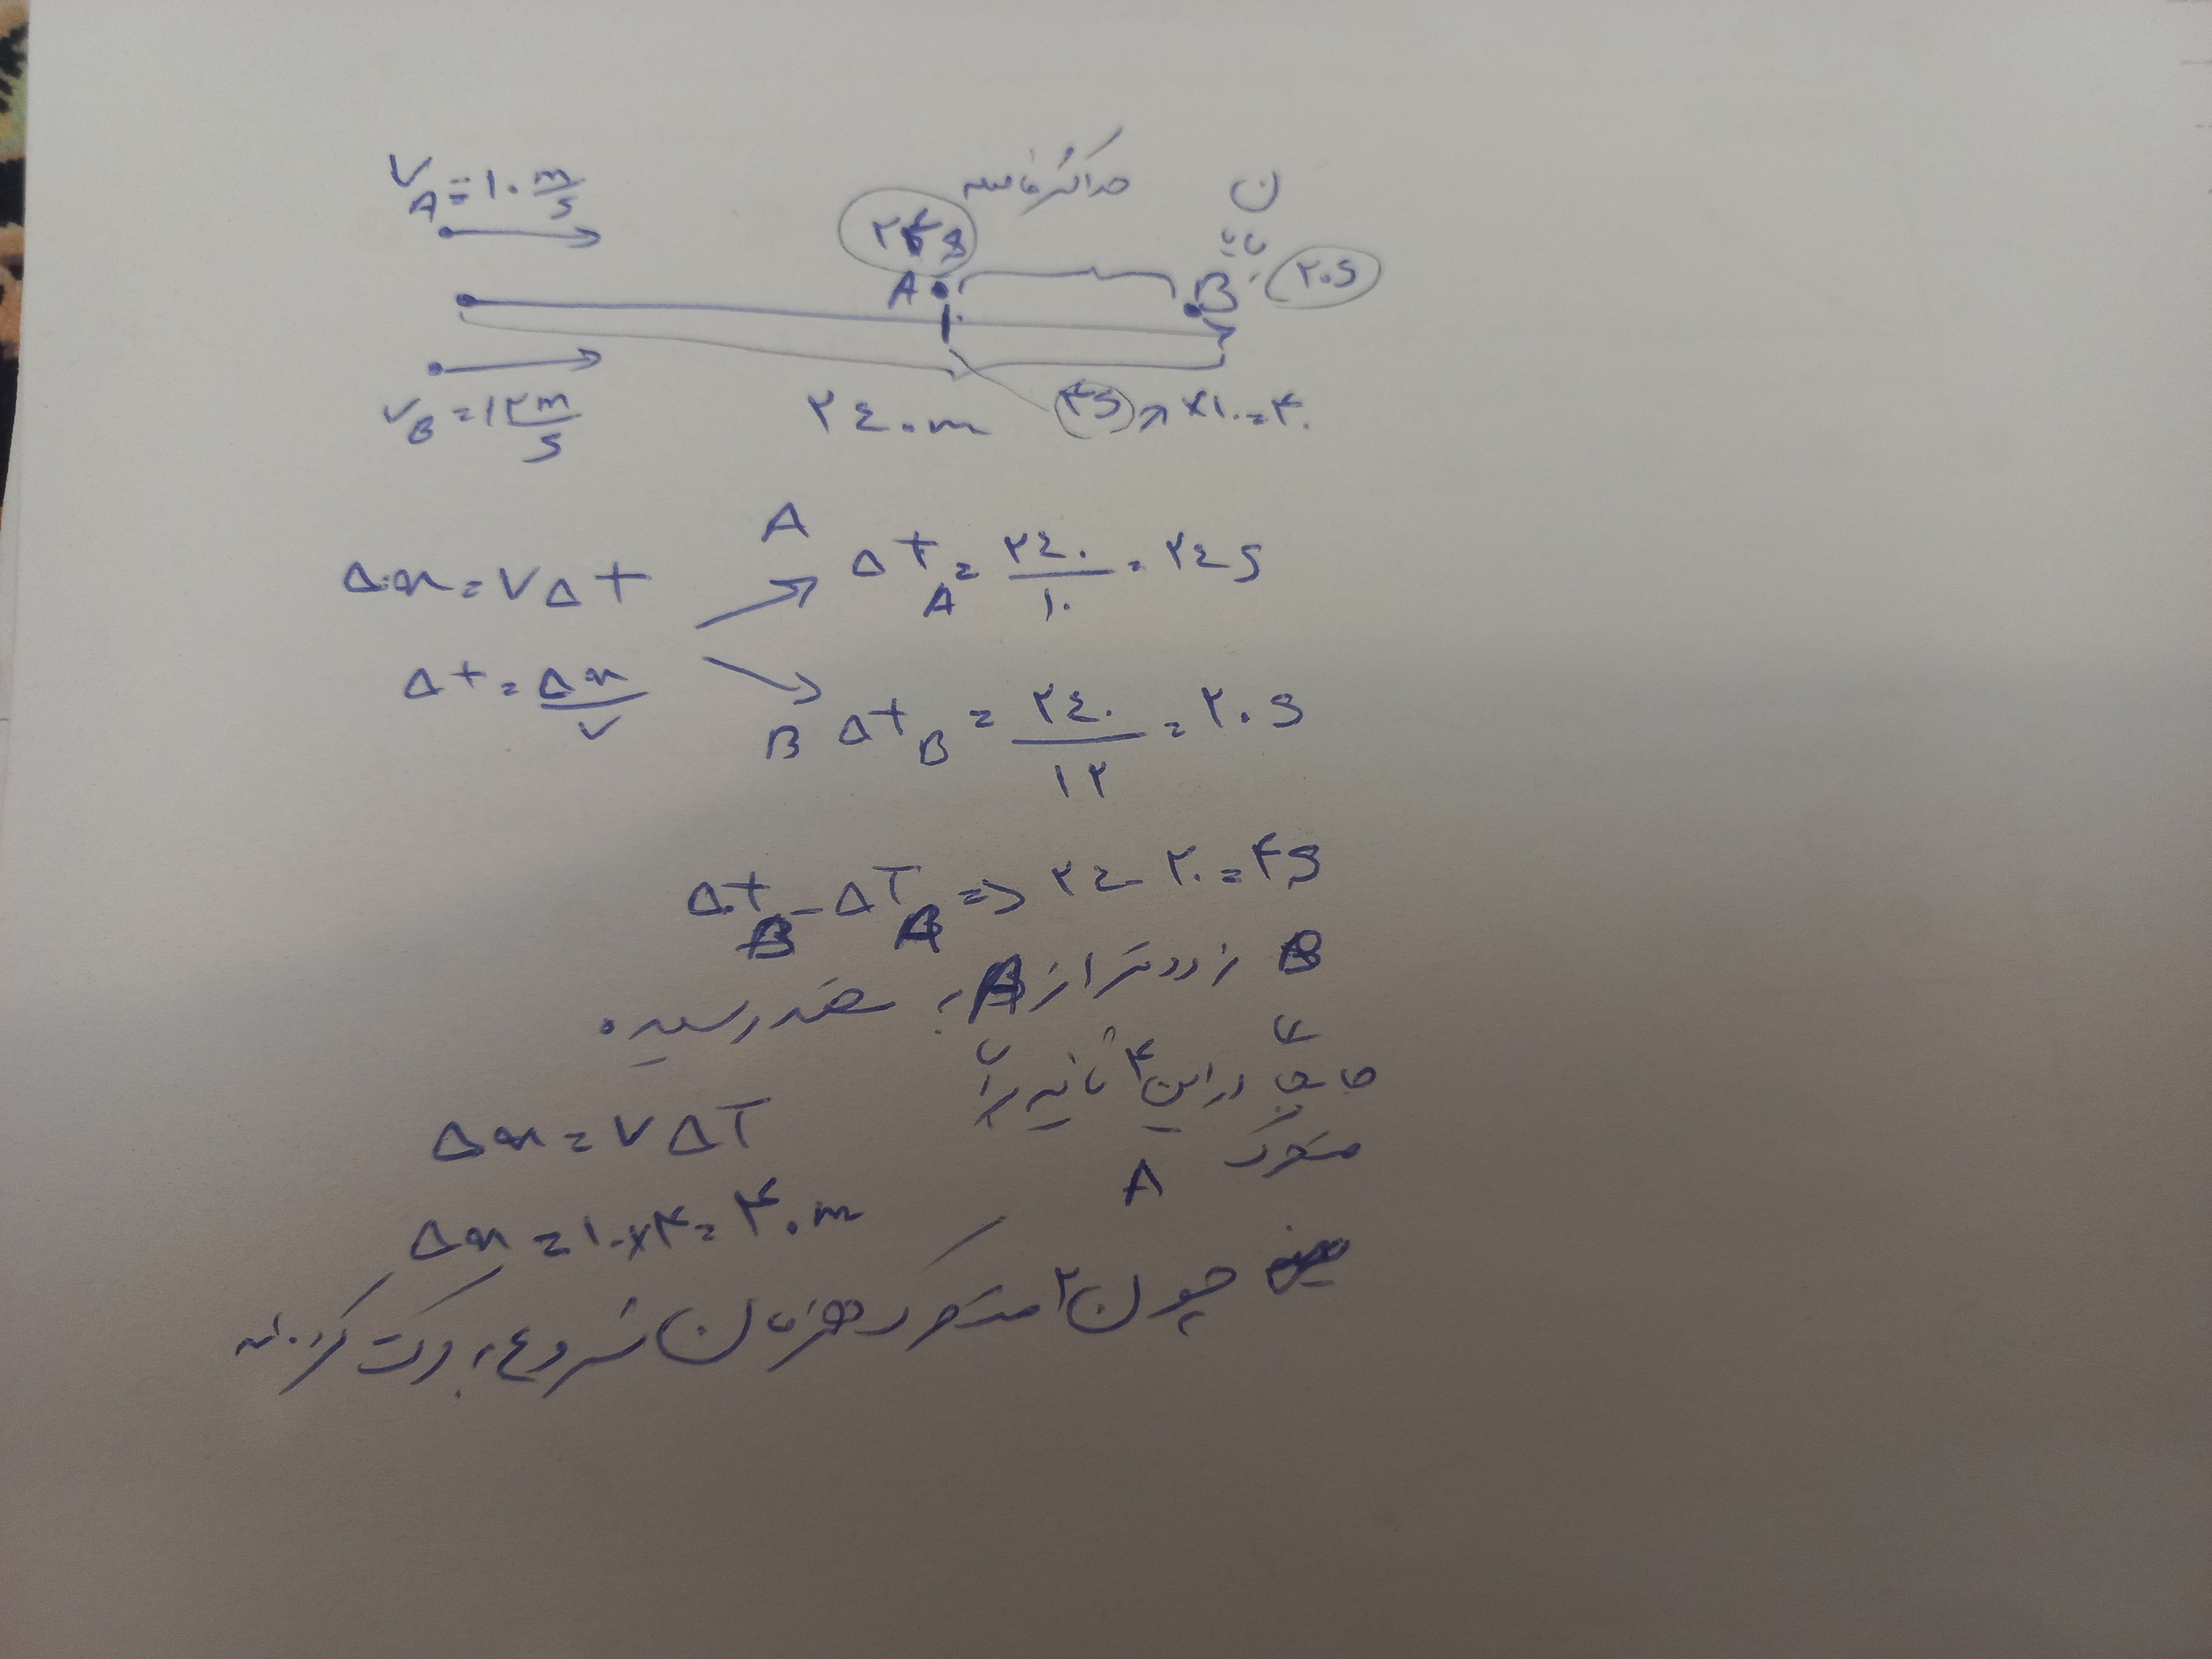 V_A = ۱۰ m/s
حداکثر فاصله
۲۴s
A
B
پایان
۲۰s
V_B = ۱۲ m/s
۲۴۰m
۴s ×۱۰=۴۰
Δx = VΔt
A Δt_A = ۲۴۰/۱۰ = ۲۴s
Δt = Δx/V
B Δt_B = ۲۴۰/۱۲ = ۲۰s
Δt_B - ΔT_A => ۲۴-۲۰=۴s
B زودتر از A به مقصد رسیده
در این ۴ ثانیه را
متحرک A
Δx = VΔT
Δx = ۱۰×۴= ۴۰m
چون ۲ متحرک همزمان شروع به حرکت کرده‌اند